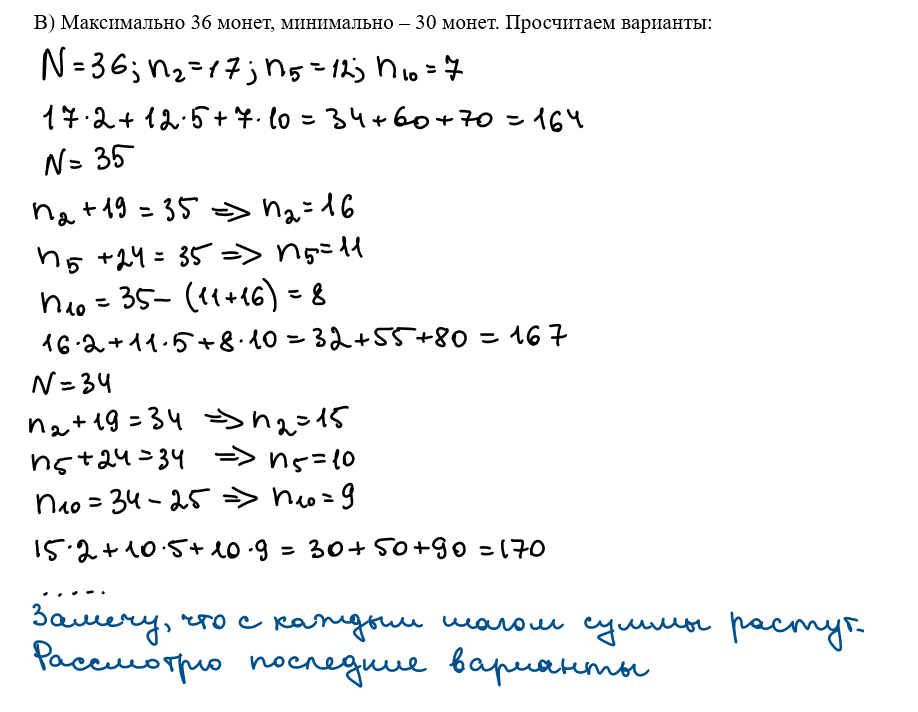 В) Максимально 36 монет, минимально – 30 монет. Просчитаем варианты:
N=36; n₂=17; n₅=12; n₁₀=7
17·2+12·5+7·10=34+60+70=164
N=35
n₂+19=35 => n₂=16
n₅+24=35 => n₅=11
n₁₀=35-(11+16)=8
16·2+11·5+8·10=32+55+80=167
N=34
n₂+19=34 => n₂=15
n₅+24=34 => n₅=10
n₁₀=34-25 => n₁₀=9
15·2+10·5+10·9=30+50+90=170
.....
Замечу, что с каждым шагом суммы растут.
Рассмотрю последние варианты